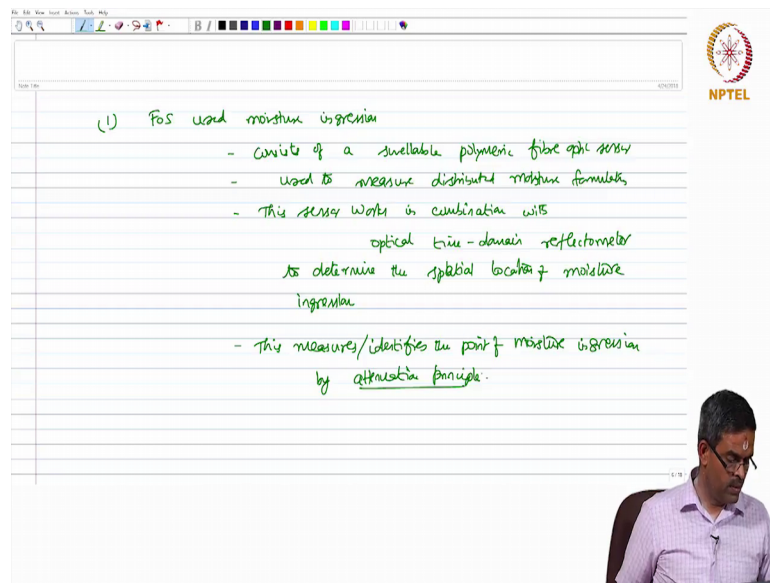 File Edit View Insert Actions Tools Help
B I
NPTEL
Note Title
4/24/2018
(1) FOS used moisture ingression
- consists of a swellable polymeric fibre optic sensor
- used to measure distributed moisture
- This sensor works in combination with
optical time-domain reflectometer
to determine the spatial location of moisture
ingression
- This measures/identifies the point of moisture ingression
by attenuation principle.
6/18